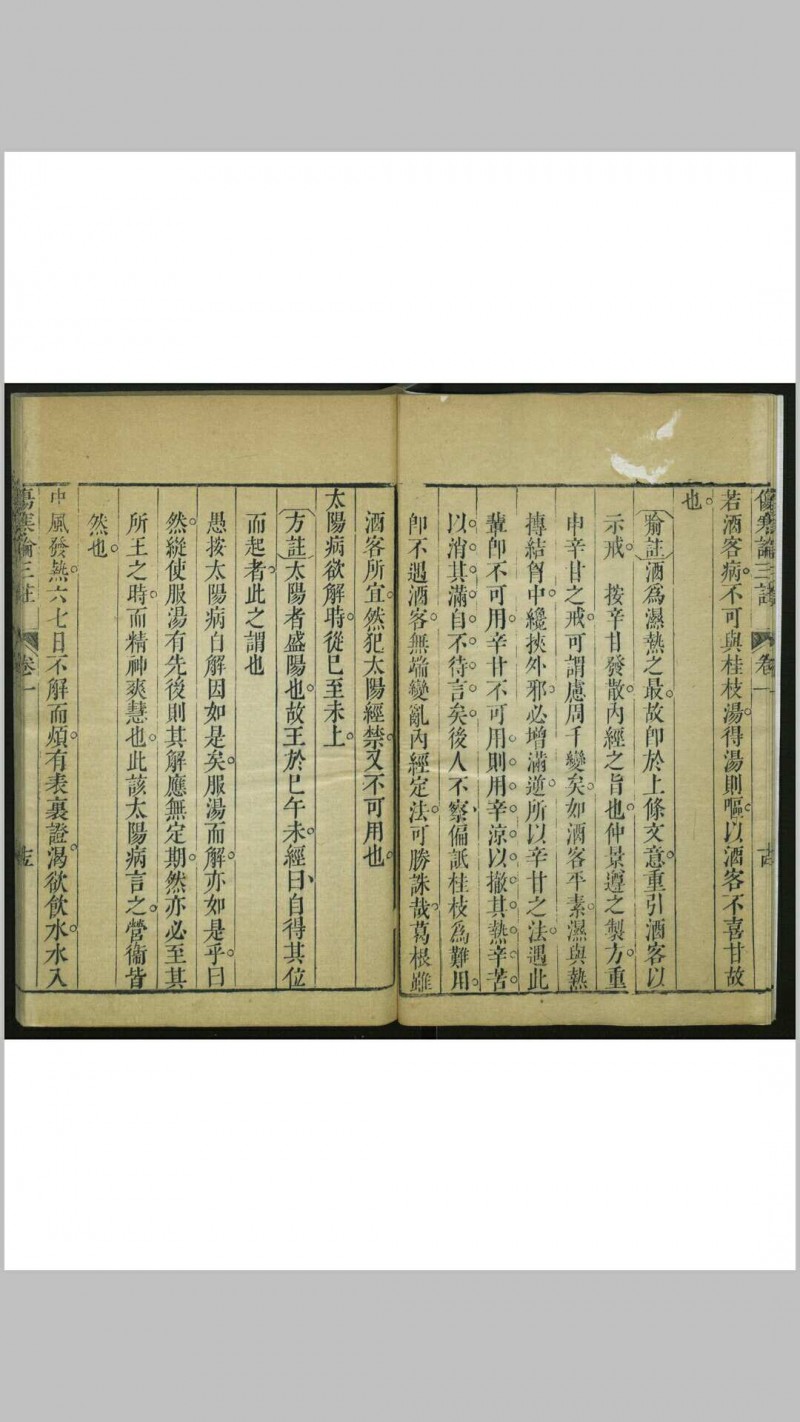 傷寒論三註 卷一
若酒客病。不可與桂枝湯。得湯則嘔。以酒客不喜甘故
也。
喻註 酒為濕熱之最。故卽於上條文意。重引酒客以
示戒。 按辛甘發散。內經之旨也。仲景遵之製方。重
申辛甘之戒。可謂慮周千變矣。如酒客平素。濕與熱
摶結胷中。纔挾外邪。必增滿逆。所以辛甘之法。遇此
輩卽不可用。辛甘不可用。則用。辛。涼。以。撤。其。熱。辛。苦。
以。消。其。滿。自。不。待。言。矣。後人不察。偏詆桂枝為難用。
卽不遇酒客。無端變亂內經定法。可勝誅哉。葛根雖
酒客所宜。然犯太陽經禁。又不可用也。
太陽病欲解時。從巳至未上。
方註 太陽者盛陽也。故王於巳午未。經曰、自得其位
而起者。此之謂也
愚按太陽病自解因如是矣。服湯而解。亦如是乎。曰
然。縱使服湯有先後則其解應無定期。然亦必至其
所王之時。而精神爽慧也。此該太陽病言之。營衞皆
然也。
中風發熱。六七日不解而煩。有表裏證。渴欲飲水。水入
傷寒論三註 卷一